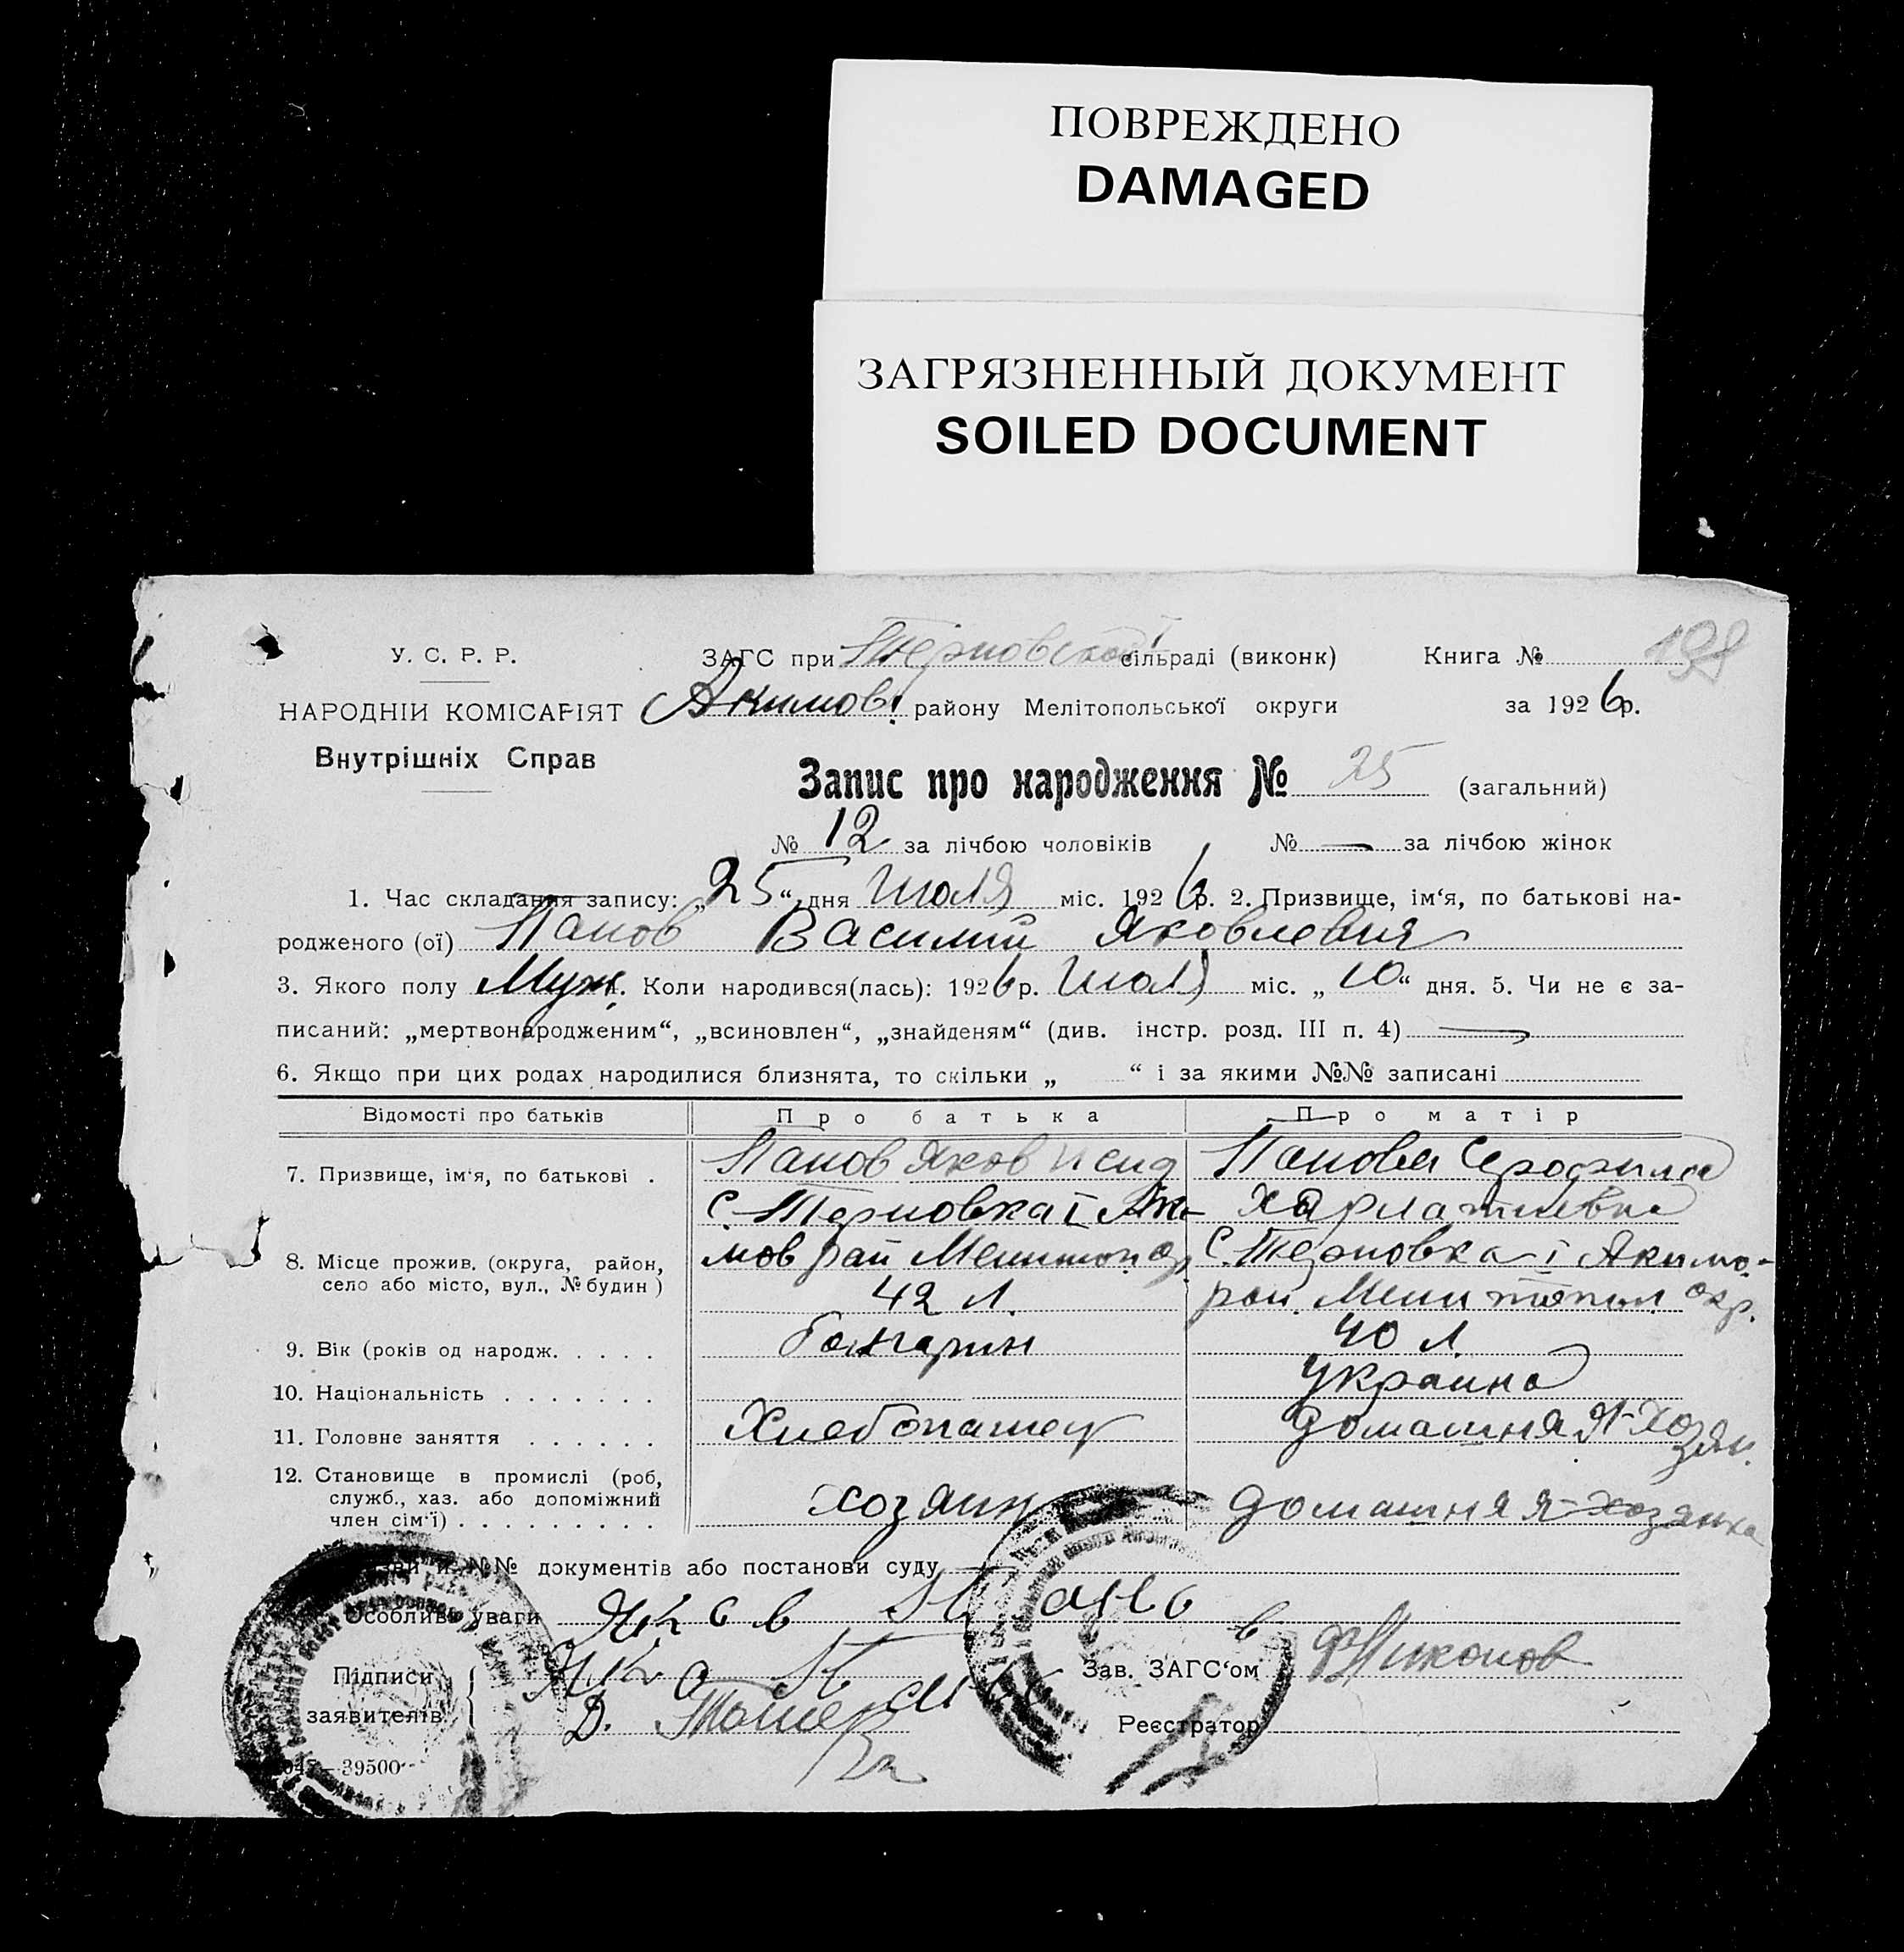 ПОВРЕЖДЕНО
DAMAGED
ЗАГРЯЗНЕННЫЙ ДОКУМЕНТ
SOILED DOCUMENT
У. С. Р. Р. ЗАГС при Терновской I сільраді (виконк) Книга № 198
НАРОДНІЙ КОМІСАРІЯТ Акимов. району Мелітопольської округи за 1926 р.
Внутрішніх Справ
Запис про народження № 25 (загальний)
№ 12 за лічбою чоловіків № — за лічбою жінок
1. Час складання запису: „25“ дня Июля міс. 1926 р. 2. Призвище, ім‘я, по батькові на-
родженого (ої) Панов Василий Яковлевич
3. Якого полу Муж. 4. Коли народився(лась): 1926 р. Июля міс. „10“ дня. 5. Чи не є за-
писаний: „мертвонародженим“, „всиновлен“, „знайденям“ (див. інстр. розд. III п. 4) —
6. Якщо при цих родах народилися близнята, то скільки „ “ і за якими №№ записані
Відомості про батьків Про батька Про матір
7. Призвище, ім‘я, по батькові . Панов Яков Панова
С. Терновка I Аки- Харлампиевна
8. Місце прожив. (округа, район, мов рай Мелитоп ор С. Терновка I Акимо-
село або місто, вул., № будин) 42 л. рай. Мелитопол окр.
9. Вік (років од народж. . . . . болгарин 40 л.
10. Національність . . . . . . . Украинка
11. Головне заняття . . . . . . Хлебопашец домашняя-хозяй.
12. Становище в промислі (роб,
служб., хаз. або допоміжний хозяин домашняя-хозяйка
член сім‘ї) . . . . . . . . .
№№ документів або постанови суду
Особливі уваги Яков Панов
Підписи Зав. ЗАГС‘ом
заявителів Д. Реєстратор
39500